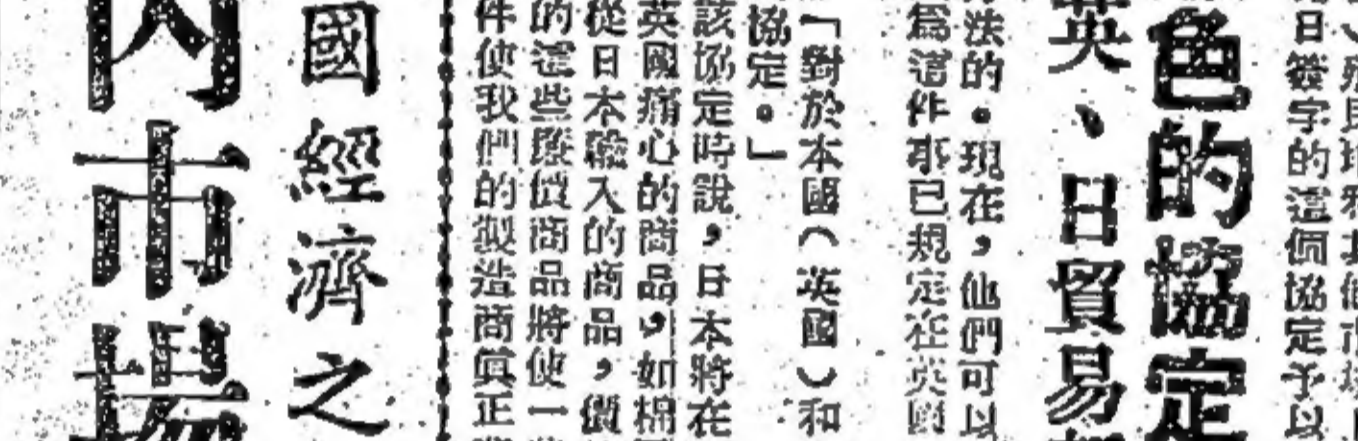 日簽字的這個協定予以
色的協定
英、日貿易
法的。現在,他們可以
爲這件事已規定在英國
「對於本國(英國)和
協定。」
該協定時說,日本將在
英國痛心的商品,如棉
從日本輸入的商品,價
的這些廉價商品將使一
件使我們的製造商眞正
國經濟之
內市場